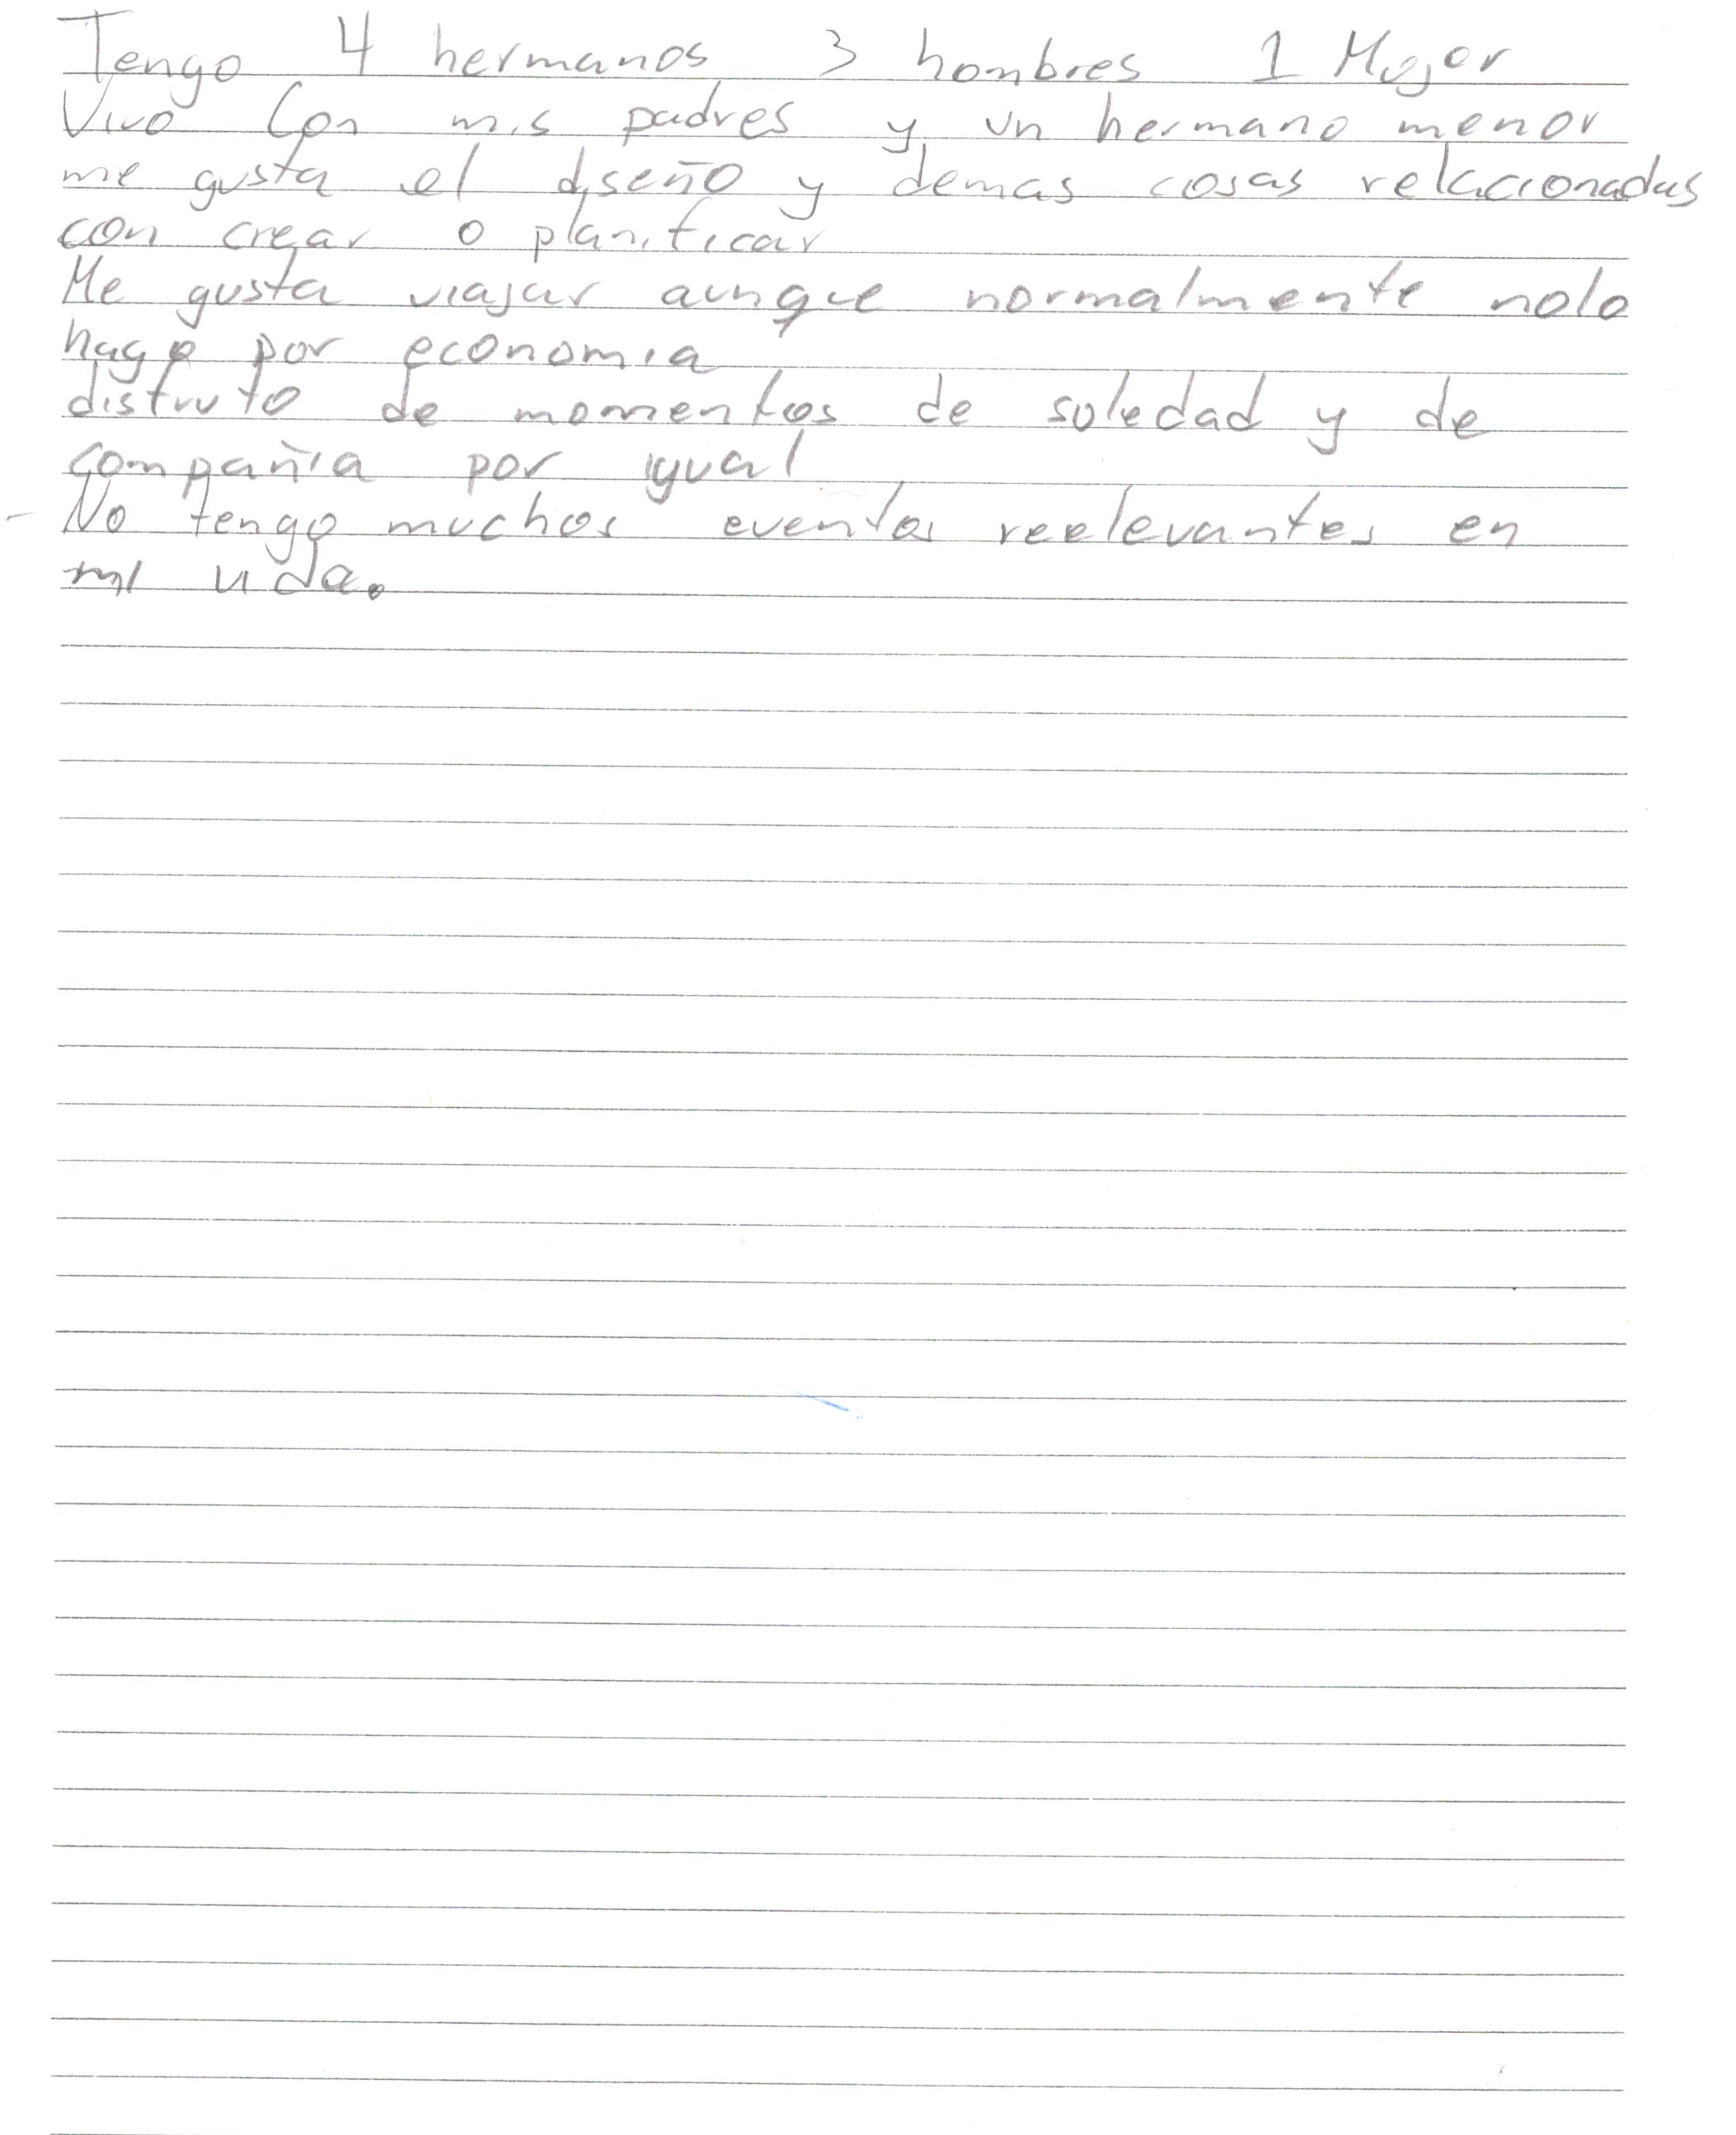 Tengo 4 hermanos 3 hombres 1 Mujer
Vivo Con mis padres y un hermano menor
me gusta el diseño y demas cosas relacionadas
con crear o planificar
Me gusta viajar aunque normalmente nolo
hago por economia
disfruto de momentos de soledad y de
compañia por igual
- No tengo muchos eventos reelevantes en
mi vida.